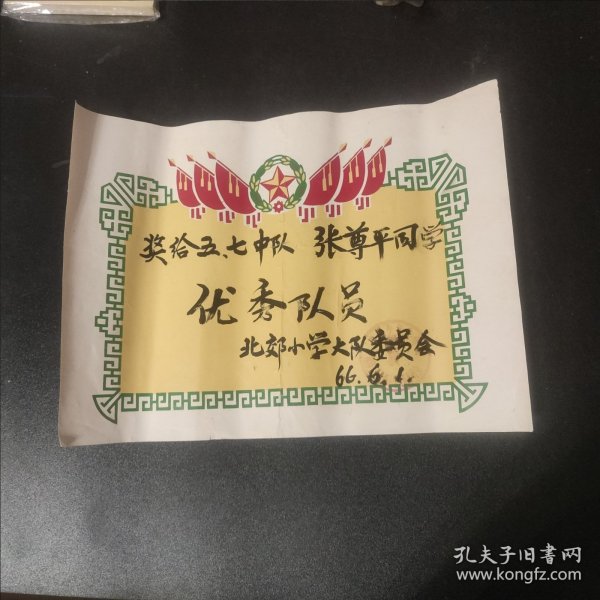 奖给五、七中队 张尊平同学
优秀队员
北郊小学大队委员会
66.6.1.
孔夫子旧书网
www.kongfz.com